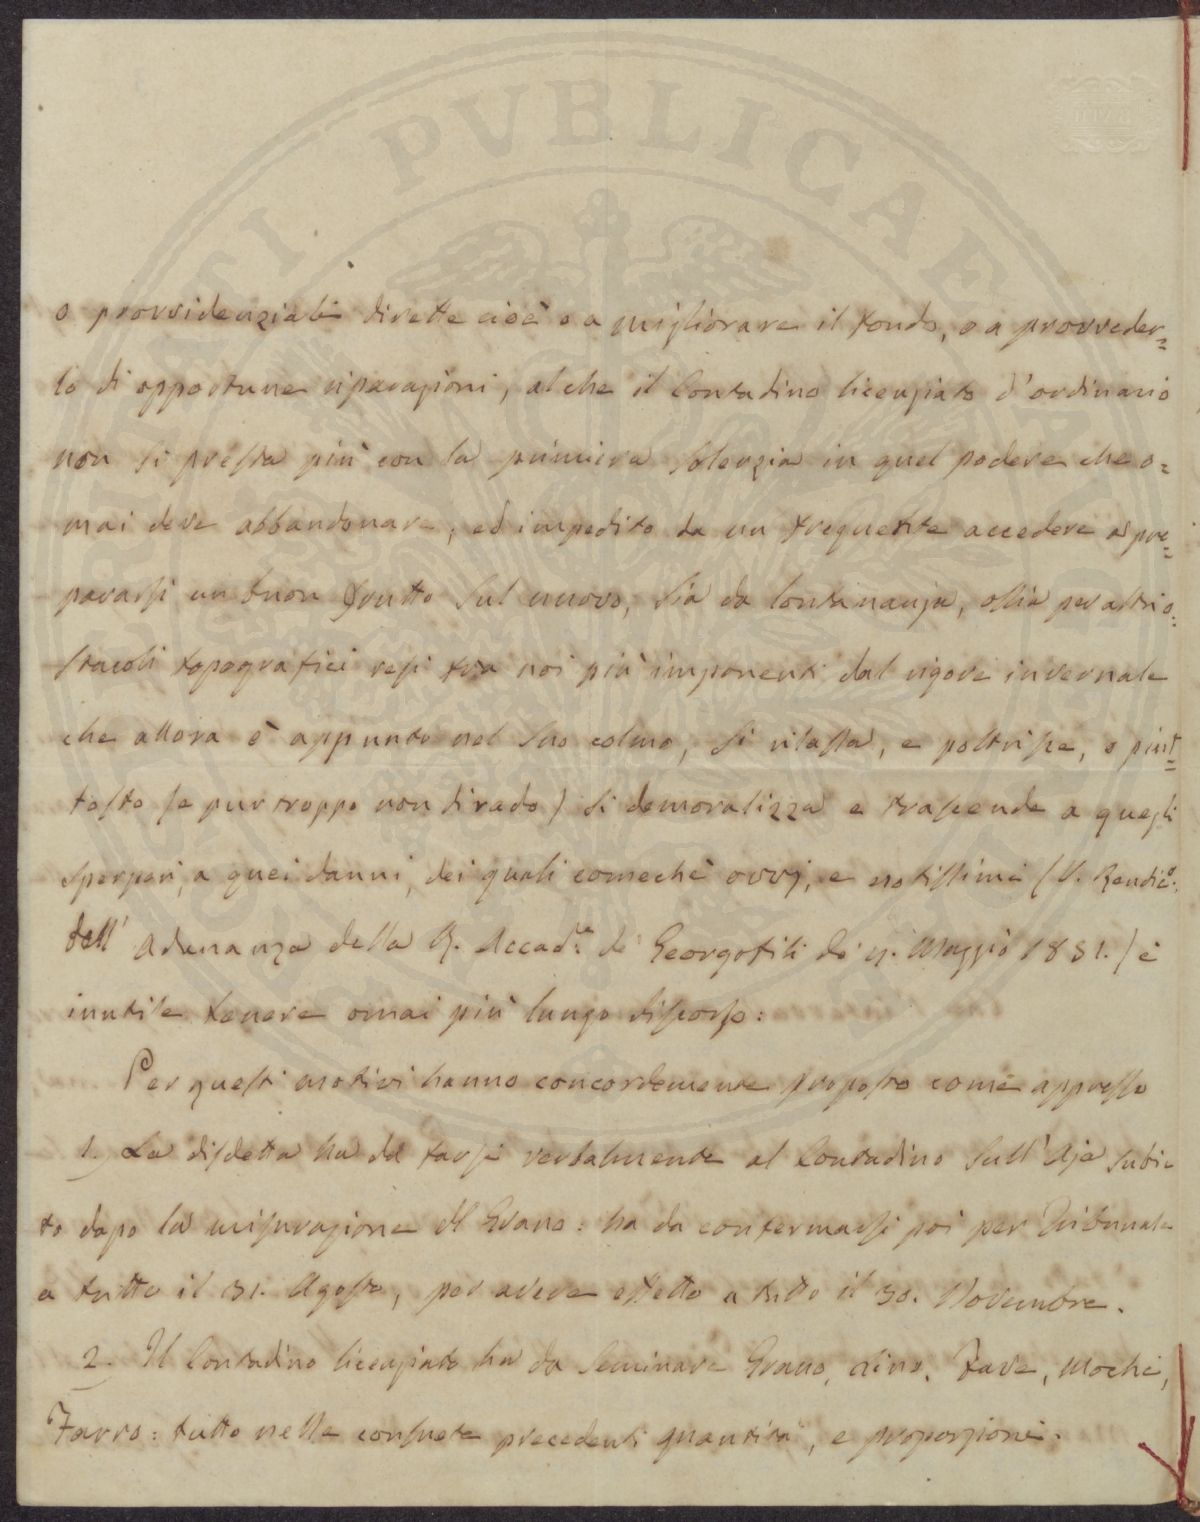 PVBLICAE
o provvidenziali dirette cioè o a migliorare il fondo, o a provveder=
lo di opportune riparazioni, al che il Contadino licenziato d'ordinario
non si presta più con la primiera solerzia in quel podere che o=
mai deve abbandonare, ed impedito da un frequente accedere a pre=
pararsi un buon frutto sul nuovo, sia da lontananza, ossia per altri o=
stacoli topografici resi tra noi più imponenti dal rigore invernale
che allora è appunto nel suo colmo, si rilassa, e poltrisce, o piut=
tosto (e pur troppo non di rado) si demoralizza e trascende a quegli
sperperi, a quei danni, dei quali comechè ovvj, e notissimi (V. Rendic.º
dell' Adunanza della R. Accad.ª de Georgofili de' Maggio 1831.) è
inutile tenere omai più lungo discorso:
Per questi motivi hanno concordemente proposto come appresso
1. La disdetta ha da farsi verbalmente al Contadino sull' Aja subi=
to dopo la misurazione del Grano: ha da confermarsi poi per Tribunale
a tutto il 31. Agosto, per avere effetto a tutto il 30. Novembre.
2. Il Contadino licenziato ha da seminare Grano, Lino, Fave, Mochi,
Farro: tutto nelle consuete precedenti quantità, e proporzioni.